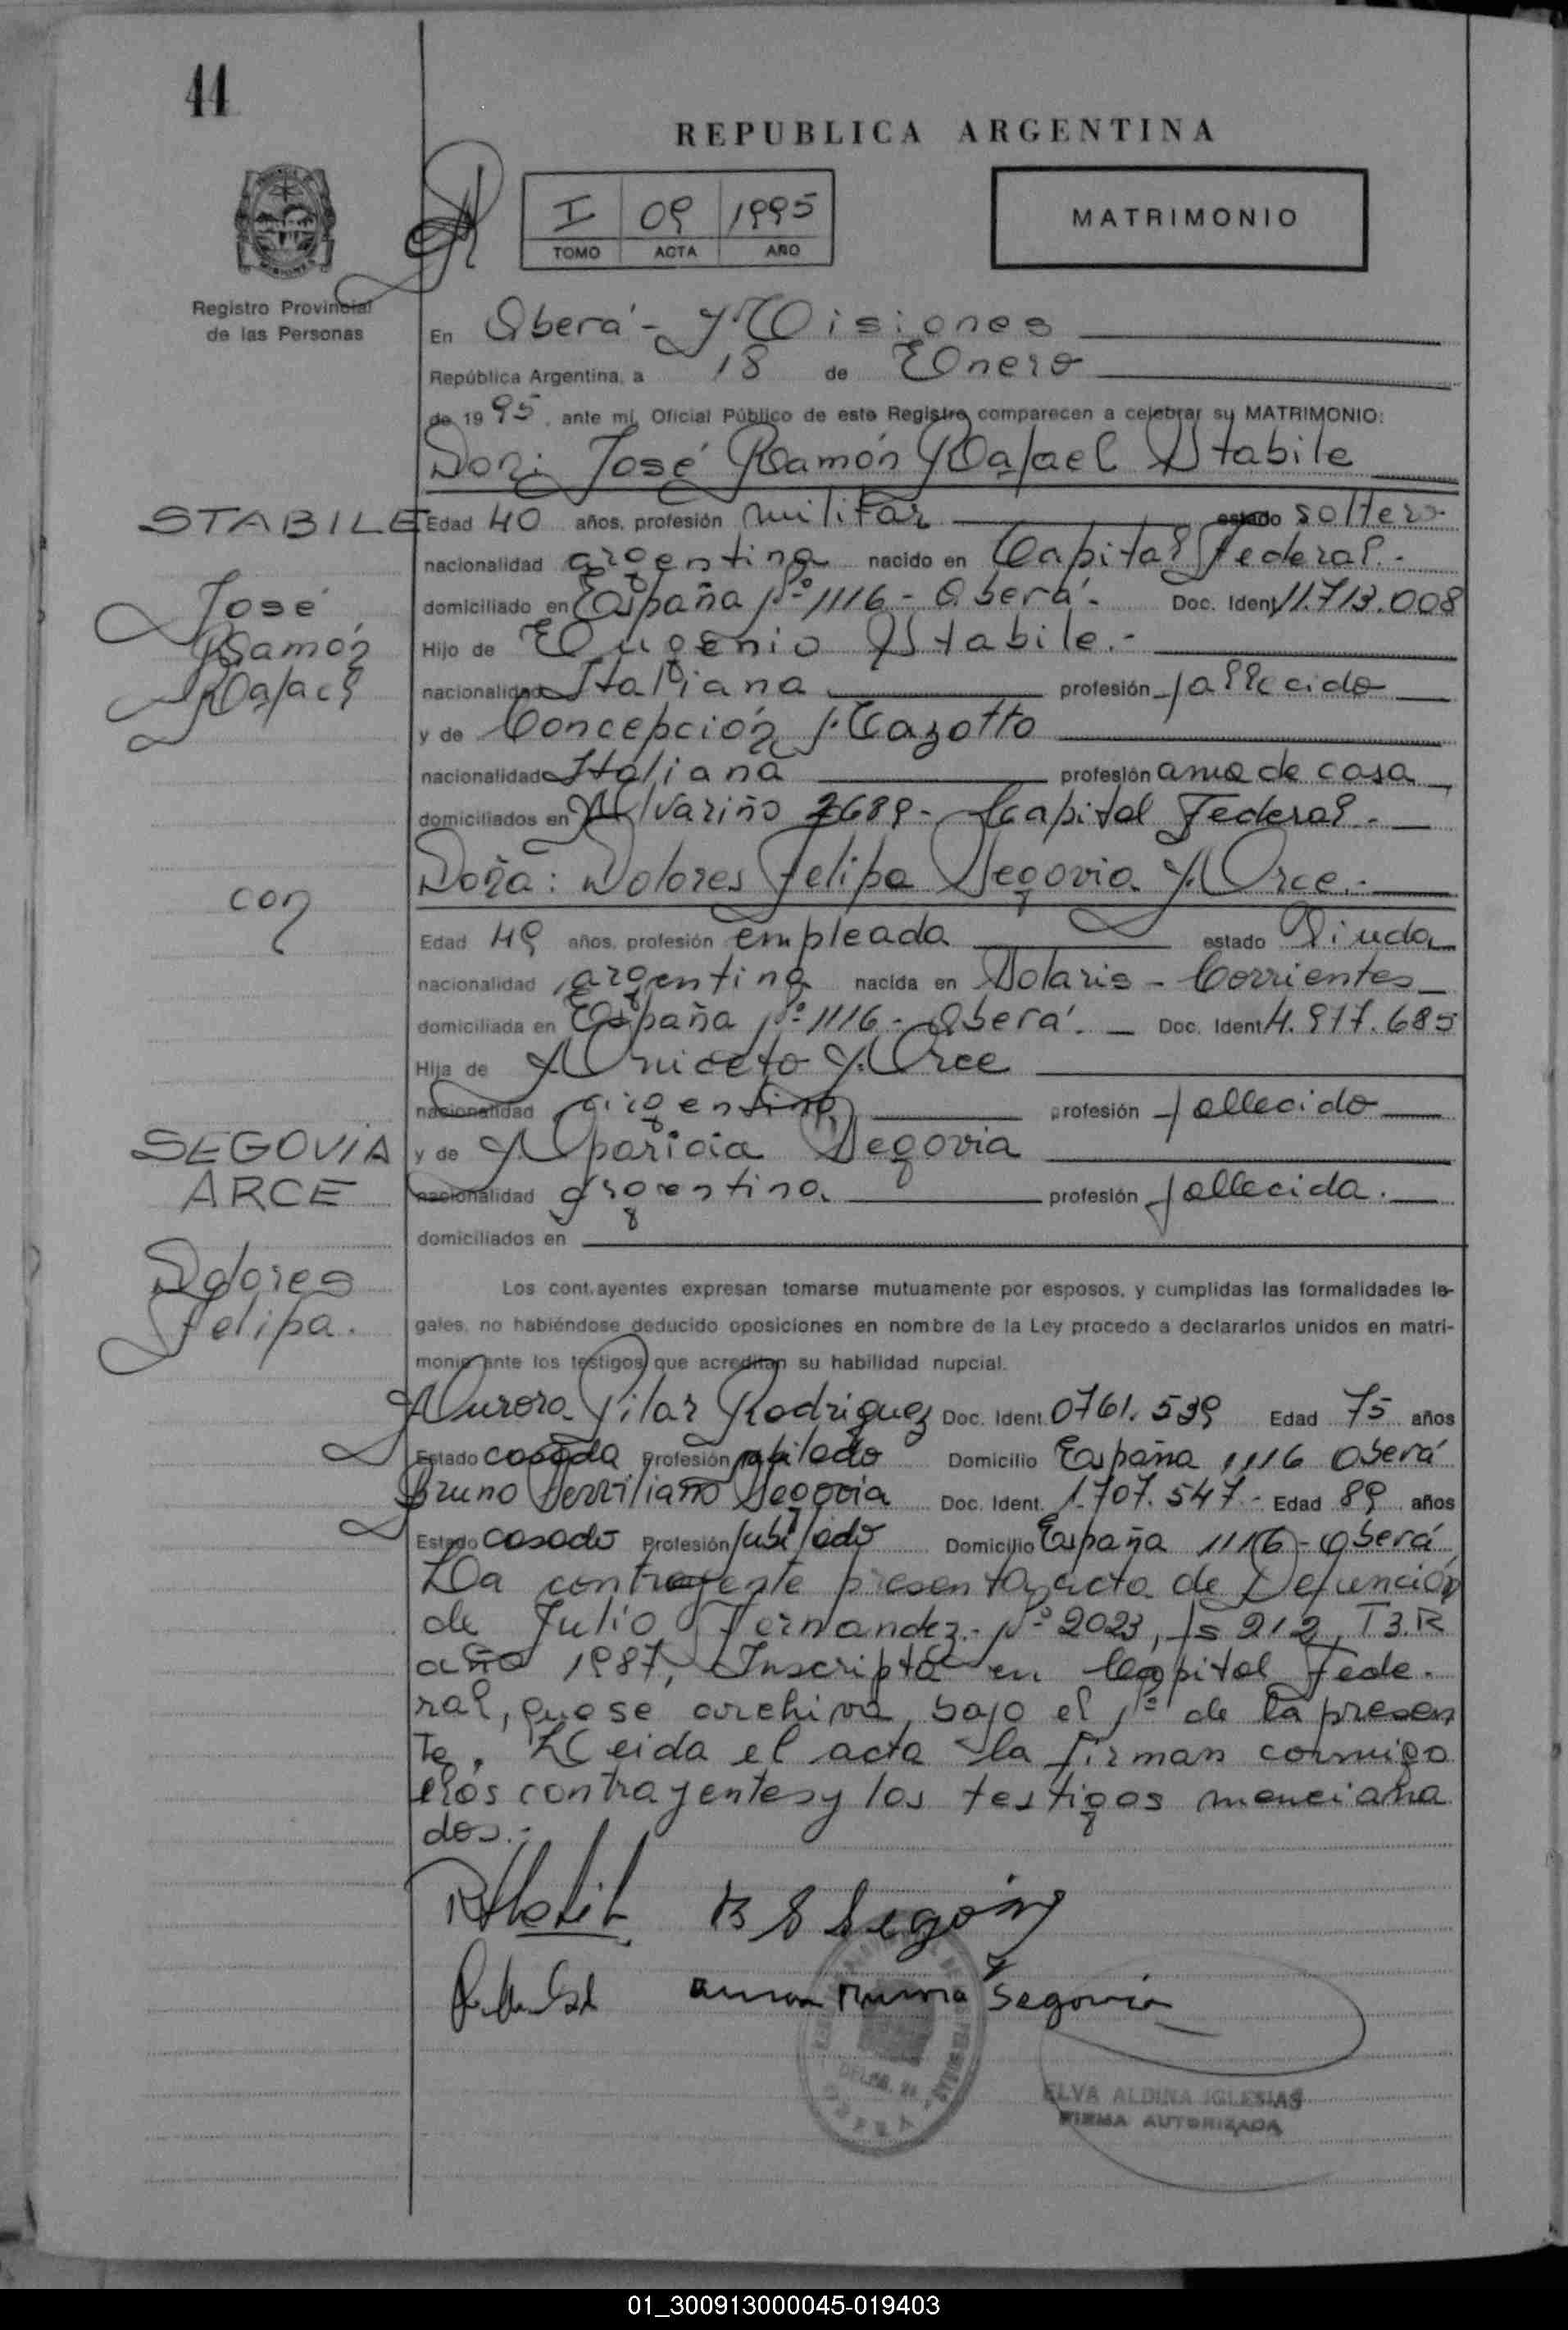 11
REPUBLICA ARGENTINA
I 09 1995
TOMO ACTA AÑO
MATRIMONIO
Registro Provincial
de las Personas
En Oberá - Misiones
República Argentina, a 18 de Enero
de 1995, ante mi, Oficial Público de este Registro comparecen a celebrar su MATRIMONIO:
Don: José Ramón Rafael Stabile
STABILE
José
Ramón
Rafael
Edad 40 años, profesión militar estado soltero
nacionalidad argentina nacido en Capital Federal.-
domiciliado en España Nº 1116 - Oberá.- Doc. Ident. 11.713.008
Hijo de Eugenio Stabile.-
nacionalidad Italiana profesión fallecido
y de Concepción Cazotto
nacionalidad Italiana profesión ama de casa
domiciliados en Alvariño 2689 - Capital Federal.-
con
Doña: Dolores Felipa Segovia Arce.-
Edad 49 años, profesión empleada estado Viuda
nacionalidad argentina nacida en - Corrientes
domiciliada en España Nº 1116 - Oberá. Doc. Ident. 4.917.685
Hija de Aniceto Arce
nacionalidad argentina profesión fallecido
SEGOVIA
ARCE
Dolores
Felipa.
y de Aparicia Segovia
nacionalidad argentina profesión fallecida.
domiciliados en
Los contrayentes expresan tomarse mutuamente por esposos, y cumplidas las formalidades le-
gales, no habiéndose deducido oposiciones en nombre de la Ley procedo a declararlos unidos en matri-
monio ante los testigos que acreditan su habilidad nupcial.
Aurora Pilar Rodriguez Doc. Ident. 0761.539 Edad 75 años
Estado casada Profesión jubilada Domicilio España 1116 Oberá
Bruno Segovia Doc. Ident. 1.707.547 - Edad 89 años
Estado casado Profesión jubilado Domicilio España 1116 - Oberá
La contrayente presenta acta de Defunción
de Julio Fernandez.- Nº 2023, fs 212, T3.R
año 1987, Inscripta en Capital Fede-
ral, que se archiva, bajo el Nº de la presen
te. Leida el acta la firman conmigo
los contrayentes y los testigos menciona
dos.-
B S Segovia
Segovia
ELVA ALDINA IGLESIAS
FIRMA AUTORIZADA
01_300913000045-019403